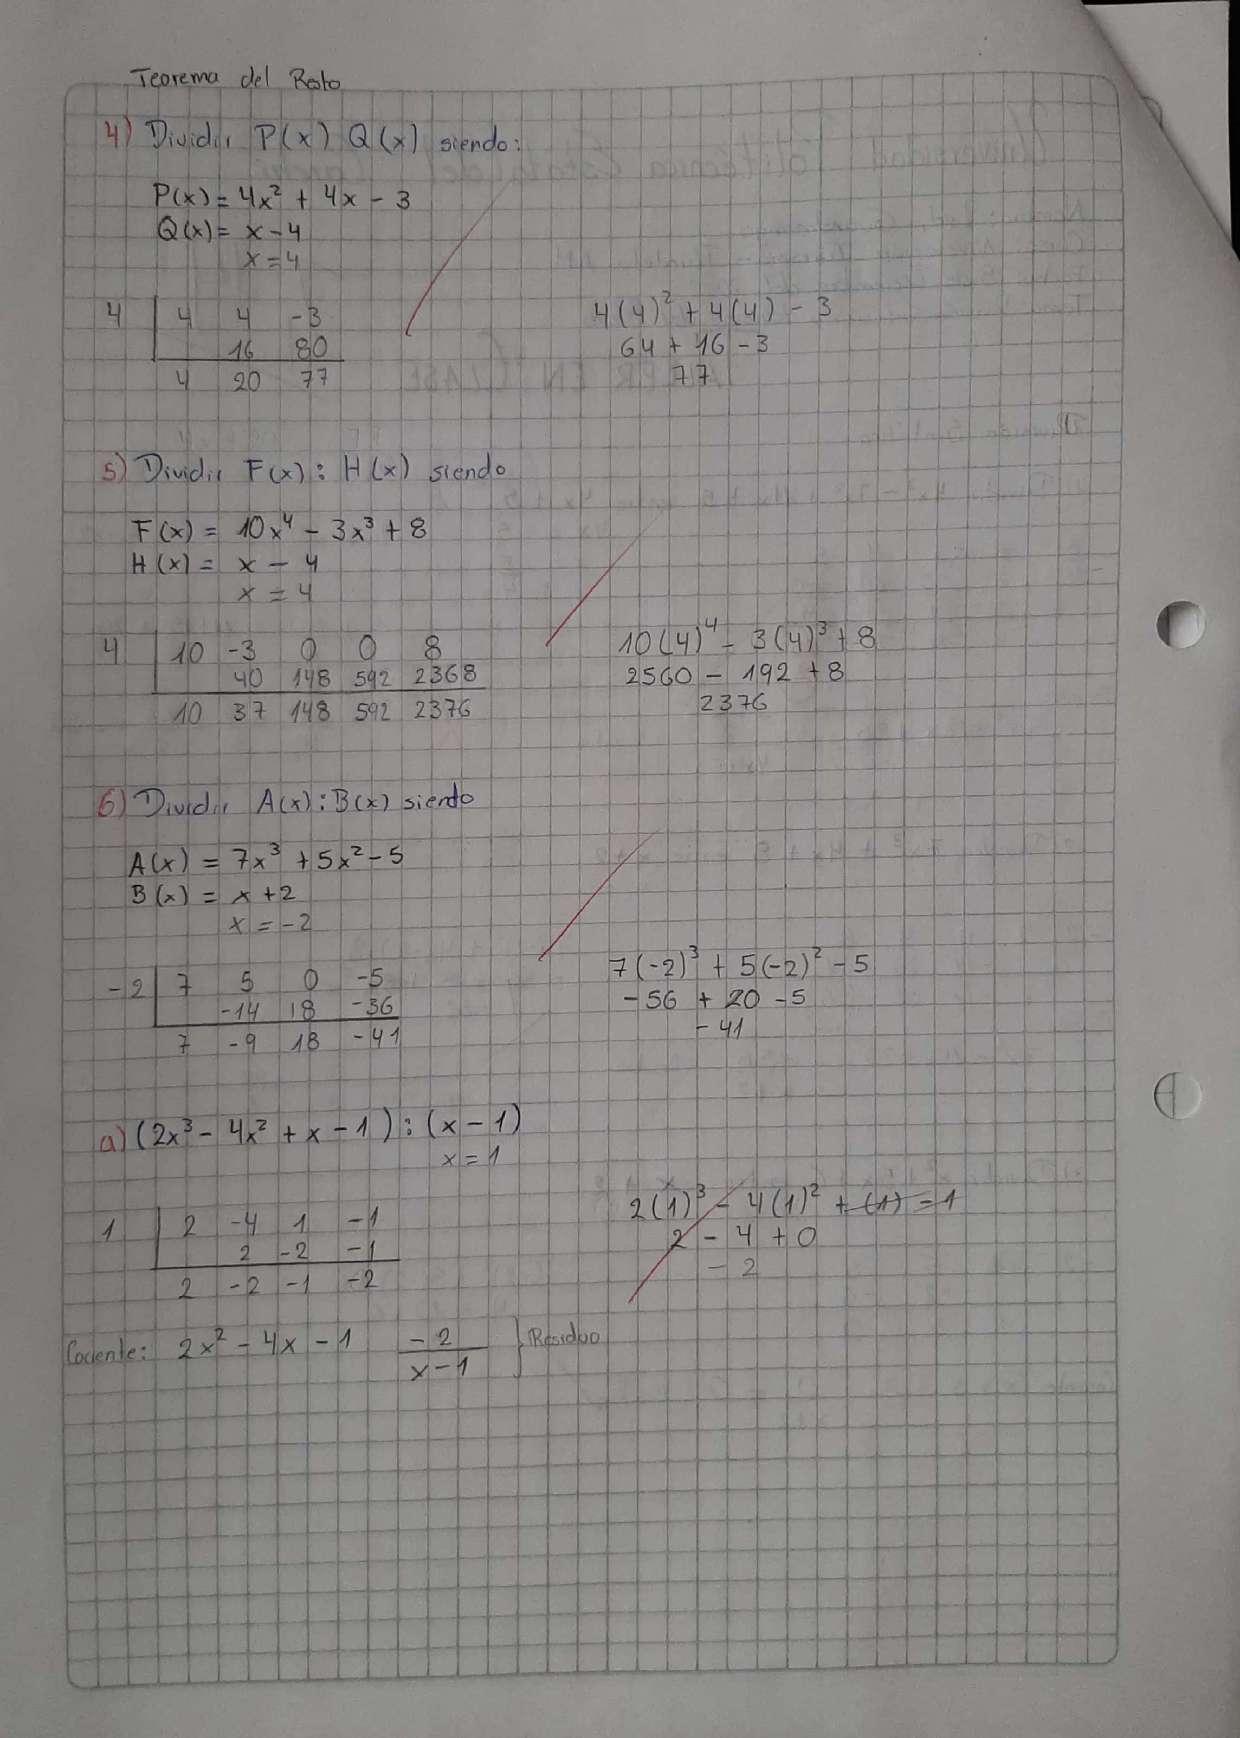 Teorema del Resto
4) Dividir P(x) Q(x) siendo:
P(x) = 4x² + 4x - 3
Q(x) = x - 4
x = 4
4 | 4 4 -3
16 80
4 20 77
4(4)² + 4(4) - 3
64 + 16 - 3
77
5) Dividir F(x) : H(x) siendo
F(x) = 10x⁴ - 3x³ + 8
H(x) = x - 4
x = 4
4 | 10 -3 0 0 8
40 148 592 2368
10 37 148 592 2376
10(4)⁴ - 3(4)³ + 8
2560 - 192 + 8
2376
6) Dividir A(x) : B(x) siendo
A(x) = 7x³ + 5x² - 5
B(x) = x + 2
x = -2
-2 | 7 5 0 -5
-14 18 -36
7 -9 18 -41
7(-2)³ + 5(-2)² - 5
-56 + 20 - 5
-41
a) (2x³ - 4x² + x - 1) : (x - 1)
x = 1
1 | 2 -4 1 -1
2 -2 -1
2 -2 -1 -2
2(1)³ - 4(1)² + (1) = 1
2 - 4 + 0
- 2
Cociente: 2x² - 4x - 1 -2/x-1 } Residuo